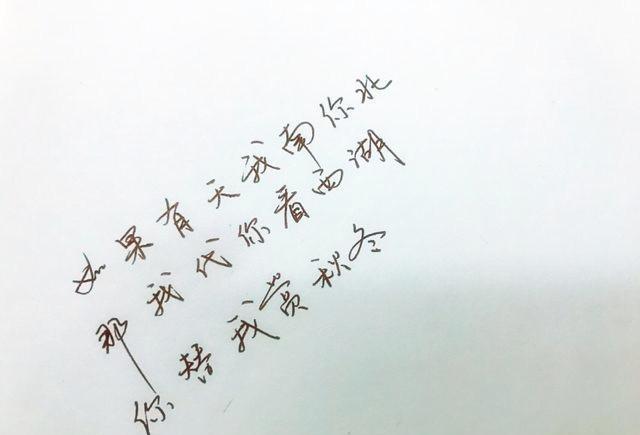 如果有天我南你北
那我代你看西湖
你替我赏秋冬